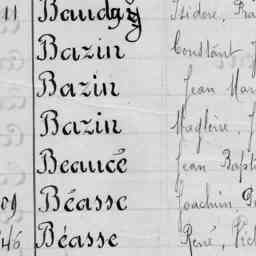 11 Baudry Isidore,
Bazin Constant
Bazin Jean Mar
Bazin Magloire,
Beaucé Jean Bapt
09 Béasse Joachim,
46 Béasse René,